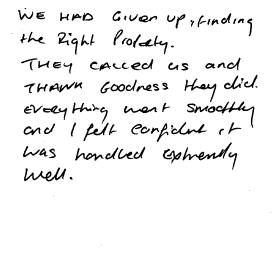 WE HAD Given up, finding
the Right Property.
THEY CALLED us and
THANK Goodness they did.
Everything went smoothly
and I felt confident it
was handled extremely
well.